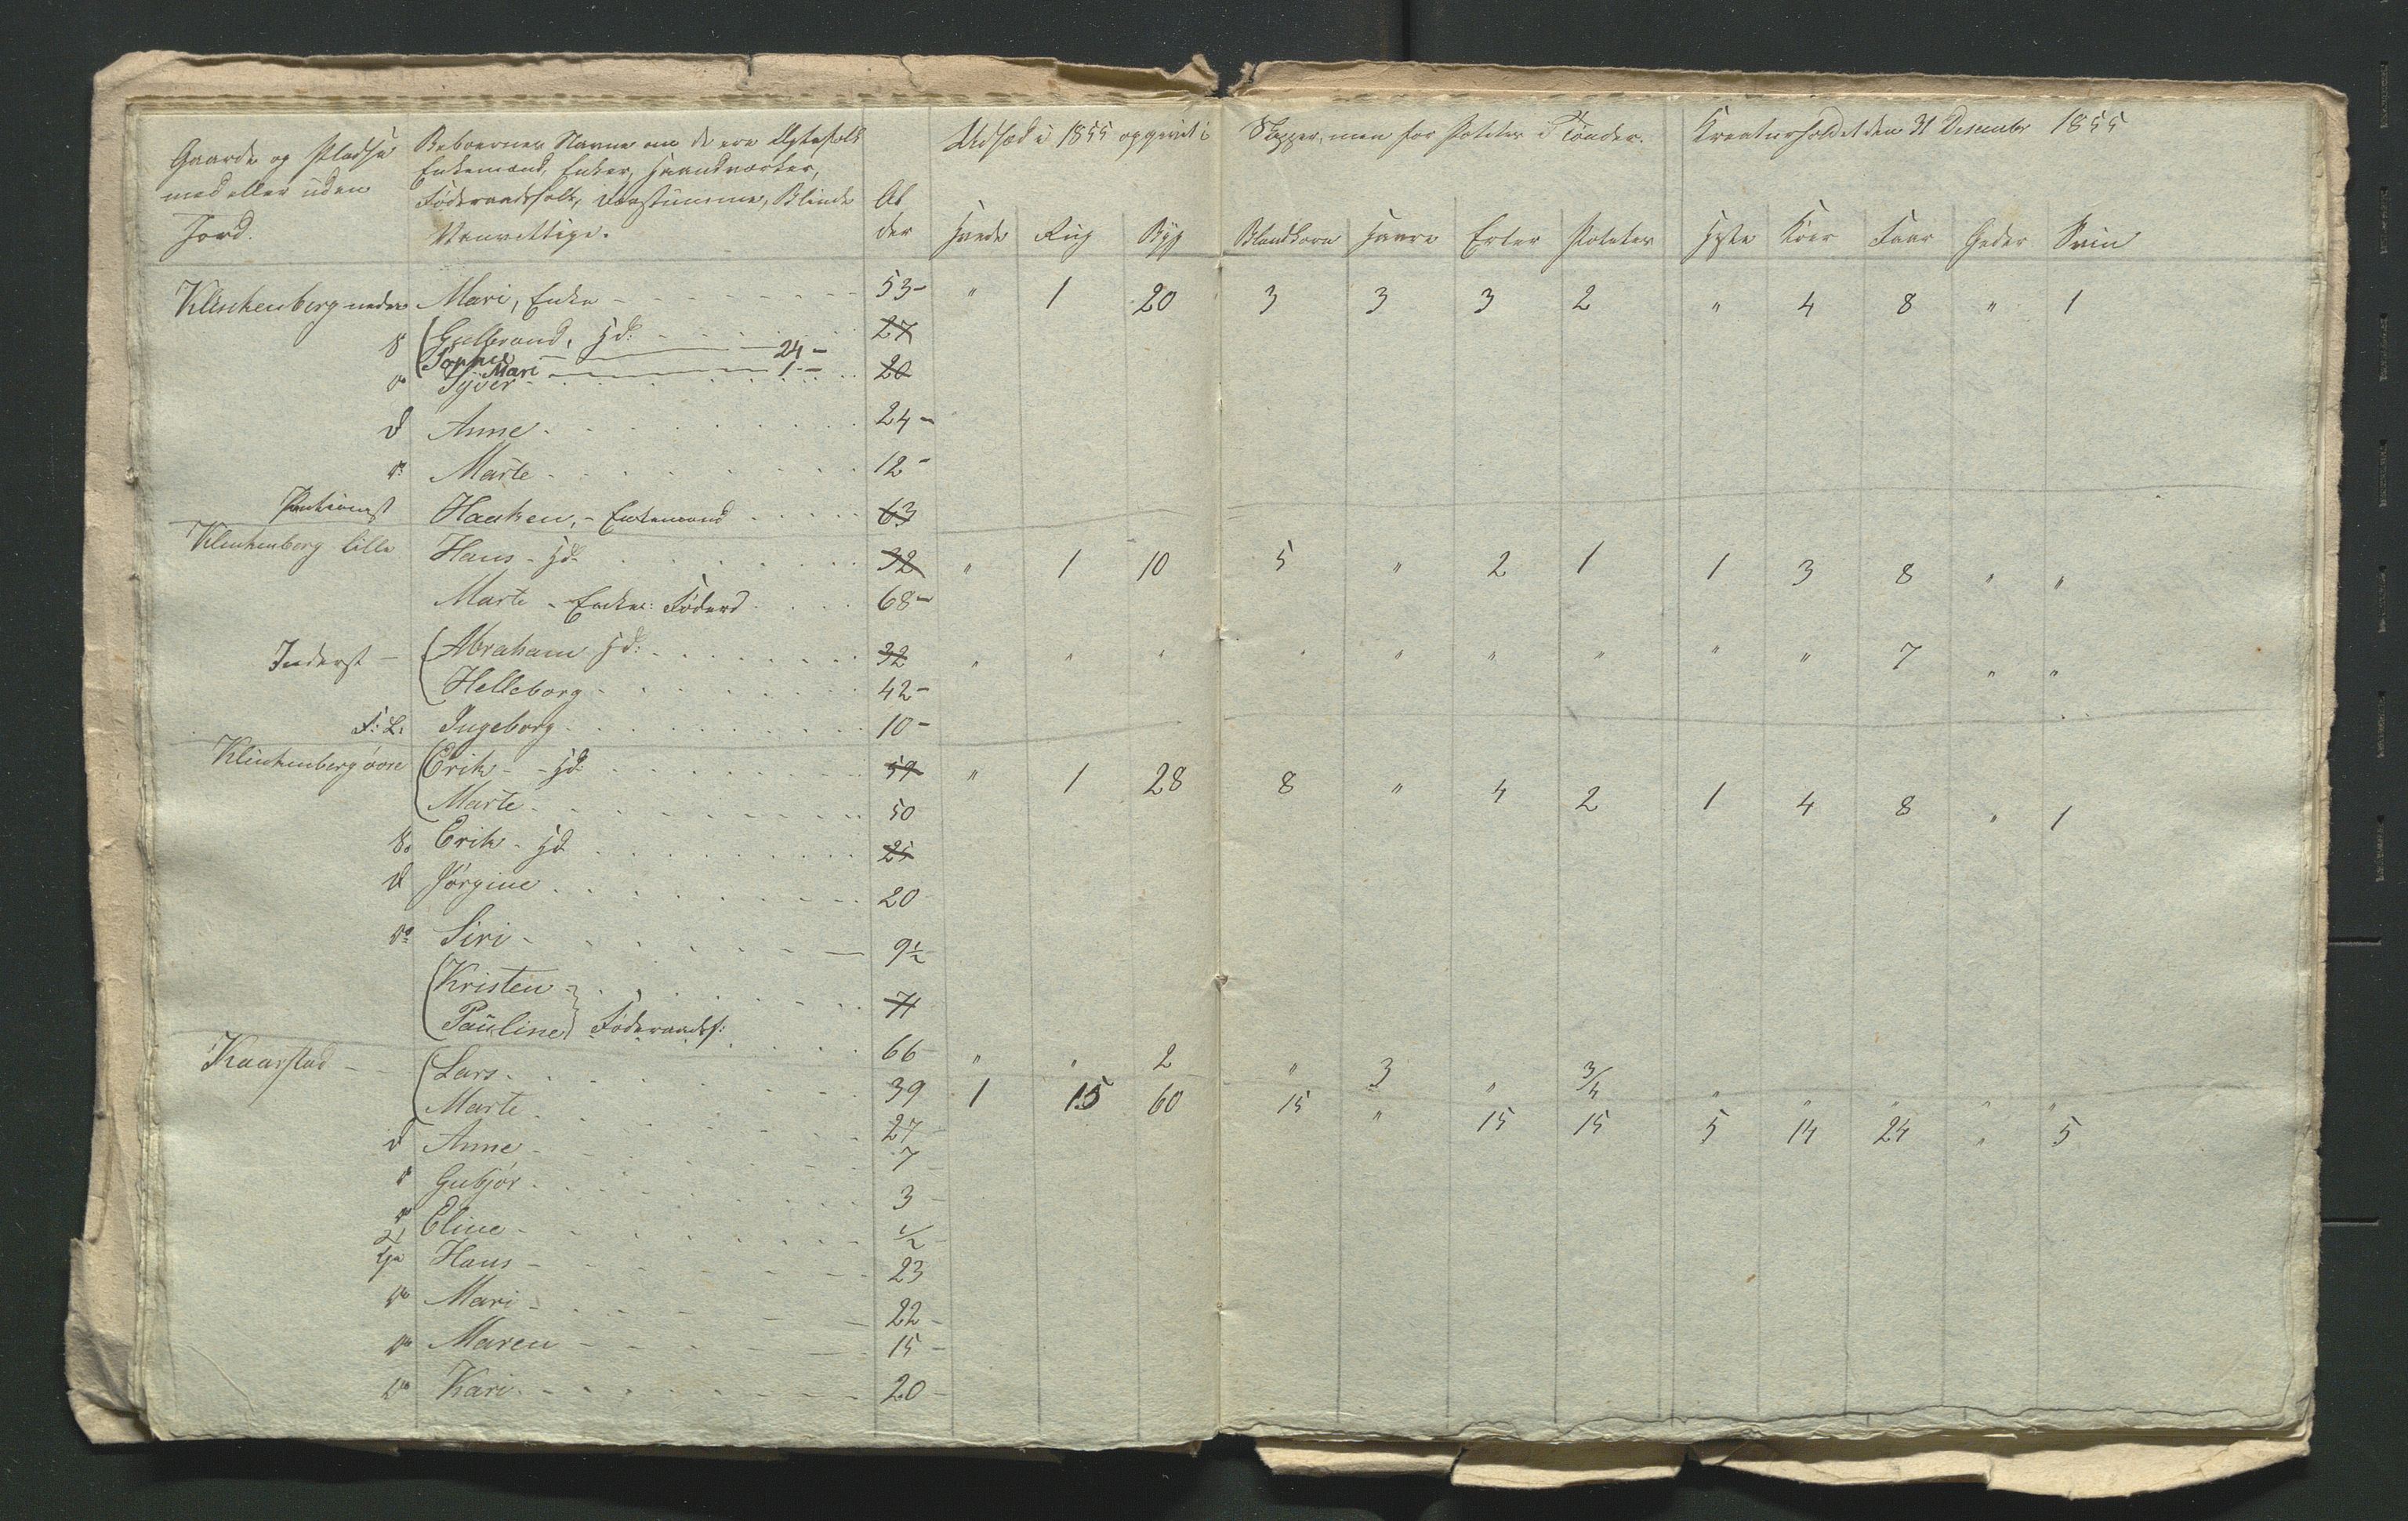 Gaarde og Pladse
med eller uden
Jord.
Beboernes Navne om de ere Ægtefolk
Enkemænd, Enker, Haandværker,
Føderaadsfolk, Døvstumme, Blinde
Vanvittige.
Al
der
Udsæd i 1855 opgivet i Skjepper, men for Poteter i Tønder.
Kreaturholdet den 31 December 1855
Hvede Rug Byg Blandkorn Havre Erter Poteter Heste Køer Faar Geder Svin
Klinkenberg nedre Mari, Enke 53 " 1 20 3 3 3 2 " 4 8 " 1
S Gulbrand, Gd: 27
Sophie 24
Mari 1
do Syver 20
D Anne 24
do Marte 12
Haaken, - Enkemand 63
Klinkenberg lille Hans - Gd 32 " 1 10 5 " 2 1 1 3 8 " "
Marte - Enke: Føderd 68
Inderst - Abraham Gd: 32 " " " " " " " " " 7 " "
Helleborg 42
F: L: Ingeborg 10
Klinkenberg øvre Erik - Gd: 59 " 1 28 8 " 4 2 1 4 8 " 1
Marte 50
S. Erik - Gd 25
D Jørgine 20
do Siri 9½
Kristen 71
Pauline Føderaadsf: 66 " " 2 " 3 " ¾ " " " " "
Kaarstad Lars 39 1 15 60 15 " 15 15 5 14 24 " 5
Marte 27
D Anne 7
do Gubjør 3
do Eline ½
Tje Hans 23
do Mari 22
do Maren 15
do Kari 20